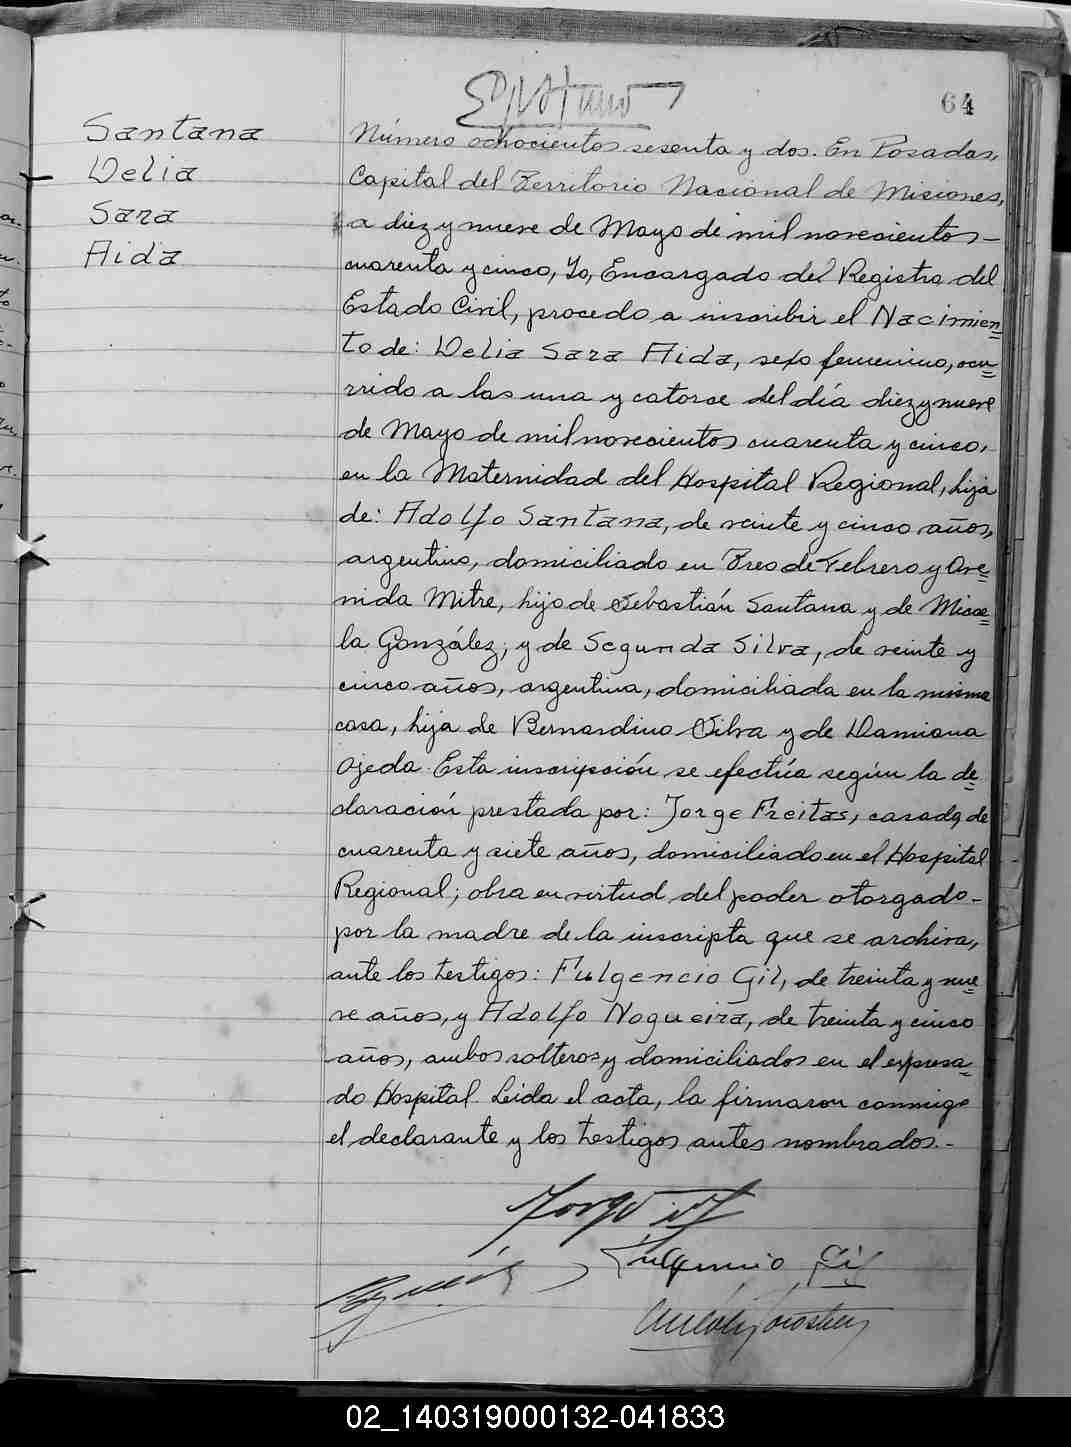 64
Santana
Delia
Sara
Aida
Número ochocientos sesenta y dos. En Posadas,
Capital del Territorio Nacional de Misiones,
a diez y nueve de Mayo de mil novecientos
cuarenta y cinco, Yo, Encargado del Registro del
Estado Civil, procedo a inscribir el Nacimien=
to de: Delia Sara Aida, sexo femenino, ocu=
rrido a las una y catorce del día diez y nueve
de Mayo de mil novecientos cuarenta y cinco,
en la Maternidad del Hospital Regional, hija
de: Adolfo Santana, de veinte y cinco años,
argentino, domiciliado en Tres de Febrero y Ave=
nida Mitre, hijo de Sebastián Santana y de Micae=
la González; y de Segunda Silva, de veinte y
cinco años, argentina, domiciliada en la misma
casa, hija de Bernardino Silva y de Damiana
Ojeda. Esta inscripción se efectúa según la de=
claración prestada por: Jorge Freitas, casado, de
cuarenta y siete años, domiciliado en el Hospital
Regional; obra en virtud del poder otorgado-
por la madre de la inscripta que se archiva,
ante los testigos: Fulgencio Gil, de treinta y nue=
ve años, y Adolfo Nogueira, de treinta y cinco
años, ambos solteros y domiciliados en el expresa=
do Hospital. Leída el acta, la firmaron conmigo
el declarante y los testigos antes nombrados.-
Fulgencio Gil
02_140319000132-041833